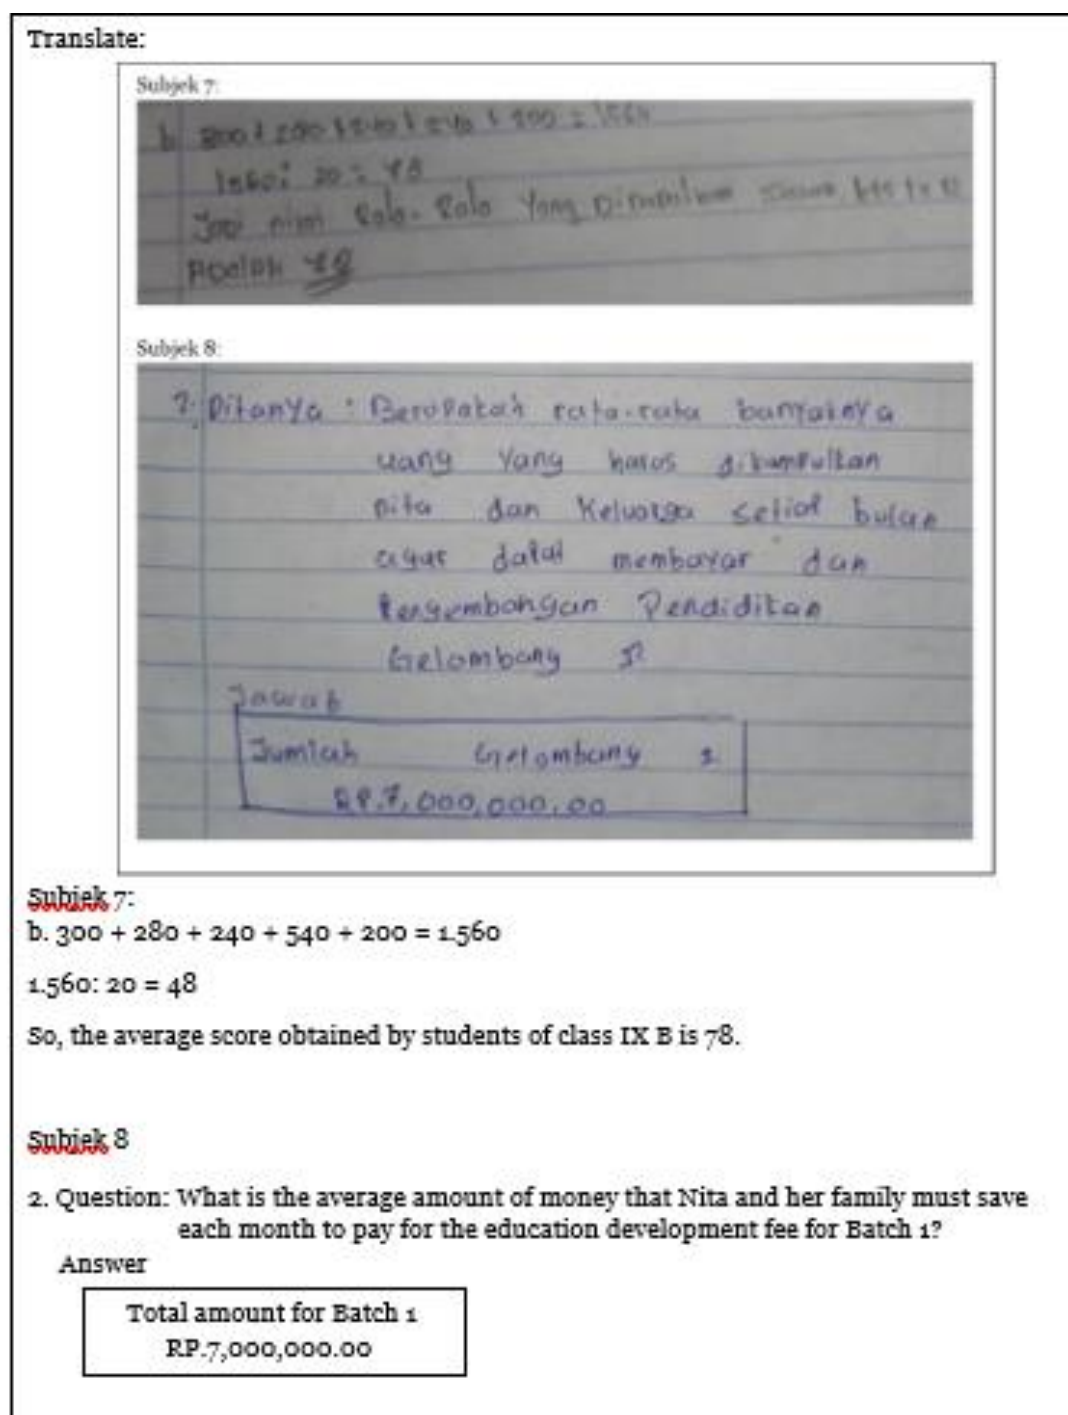 Translate:
Subjek 7:
b 300 + 280 + 240 + 540 + 200 = 1560
1560: 20 = 78
Jadi nilai Rata-Rata Yang Dinilai siswa kls IX B
Adalah 78
Subjek 8:
2. Ditanya : Berapakah rata-rata banyaknya
uang Yang harus dikumpulkan
nita dan Keluarga setiap bulan
agar dapat membayar dan
Pengembangan Pendidikan
Gelombang
Jawab
Jumlah Gelombang 1
RP.7,000,000.00
Subjek 7:
b. 300 + 280 + 240 + 540 + 200 = 1.560
1.560: 20 = 48
So, the average score obtained by students of class IX B is 78.
Subjek 8
2. Question: What is the average amount of money that Nita and her family must save
each month to pay for the education development fee for Batch 1?
Answer
Total amount for Batch 1
RP.7,000,000.00